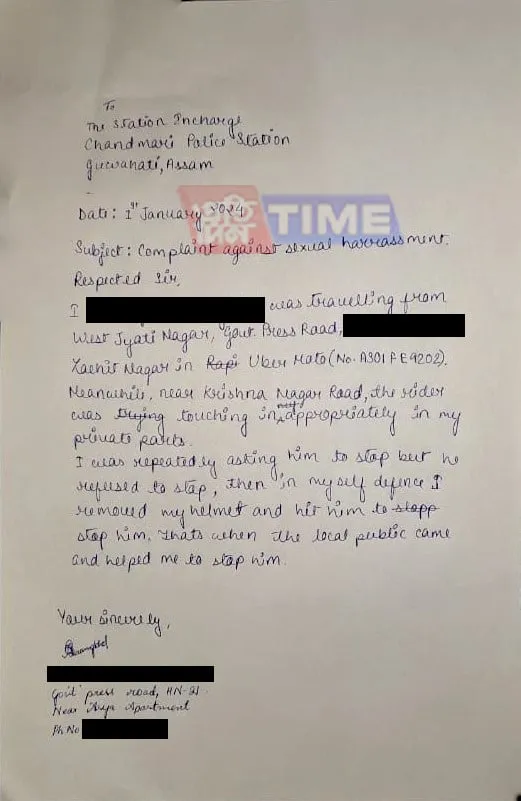 To
The Station Incharge
Chandmari Police Station
Guwahati, Assam
Date: 1st January 2024
প্রতিদিন TIME
Subject: Complaint against sexual harrassment.
Respected Sir,
I was travelling from
West Jyoti Nagar, Govt. Press Road,
Lachit Nagar in Rapi Uber Moto (No. AS01FE9202).
Meanwhile, near Krishna Nagar Road, the rider
was trying touching inappropriately in my
private parts.
I was repeatedly asking him to stop but he
refused to stop, then in my self defence I
removed my helmet and hit him to stopp
stop him. Thats when the local public came
and helped me to stop him.
Your sincerely,
Govt press road, HN-21
Near Apartment
Ph No